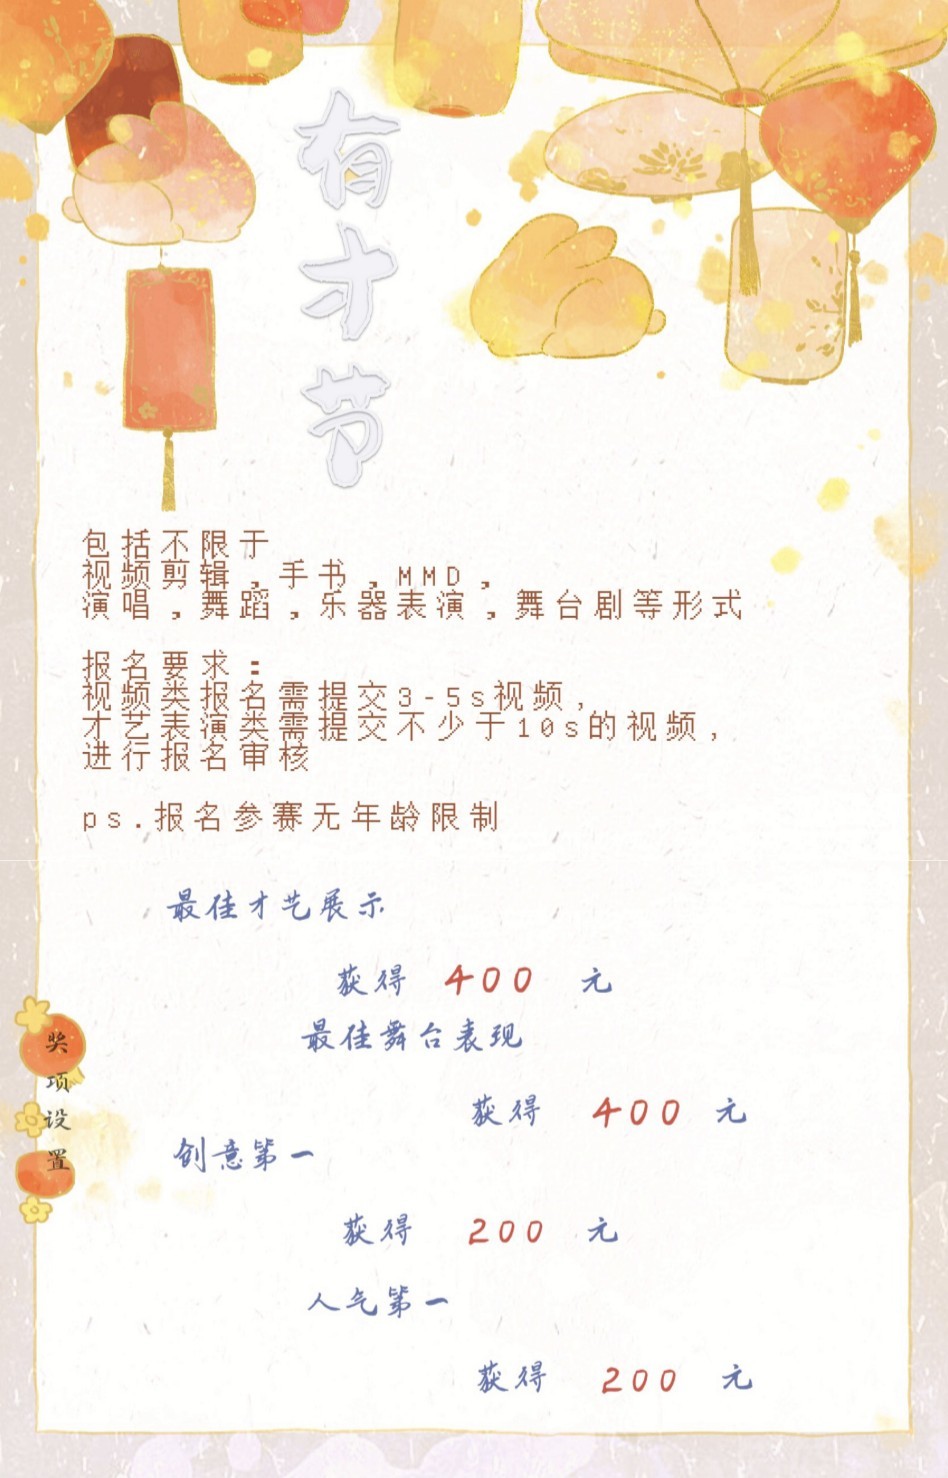 有才节
包括不限于
视频剪辑，手书，MMD，
演唱，舞蹈，乐器表演，舞台剧等形式
报名要求：
视频类报名需提交3-5s视频，
才艺表演类需提交不少于10s的视频，
进行报名审核
ps.报名参赛无年龄限制
奖项设置
最佳才艺展示
获得 400 元
最佳舞台表现
获得 400 元
创意第一
获得 200 元
人气第一
获得 200 元